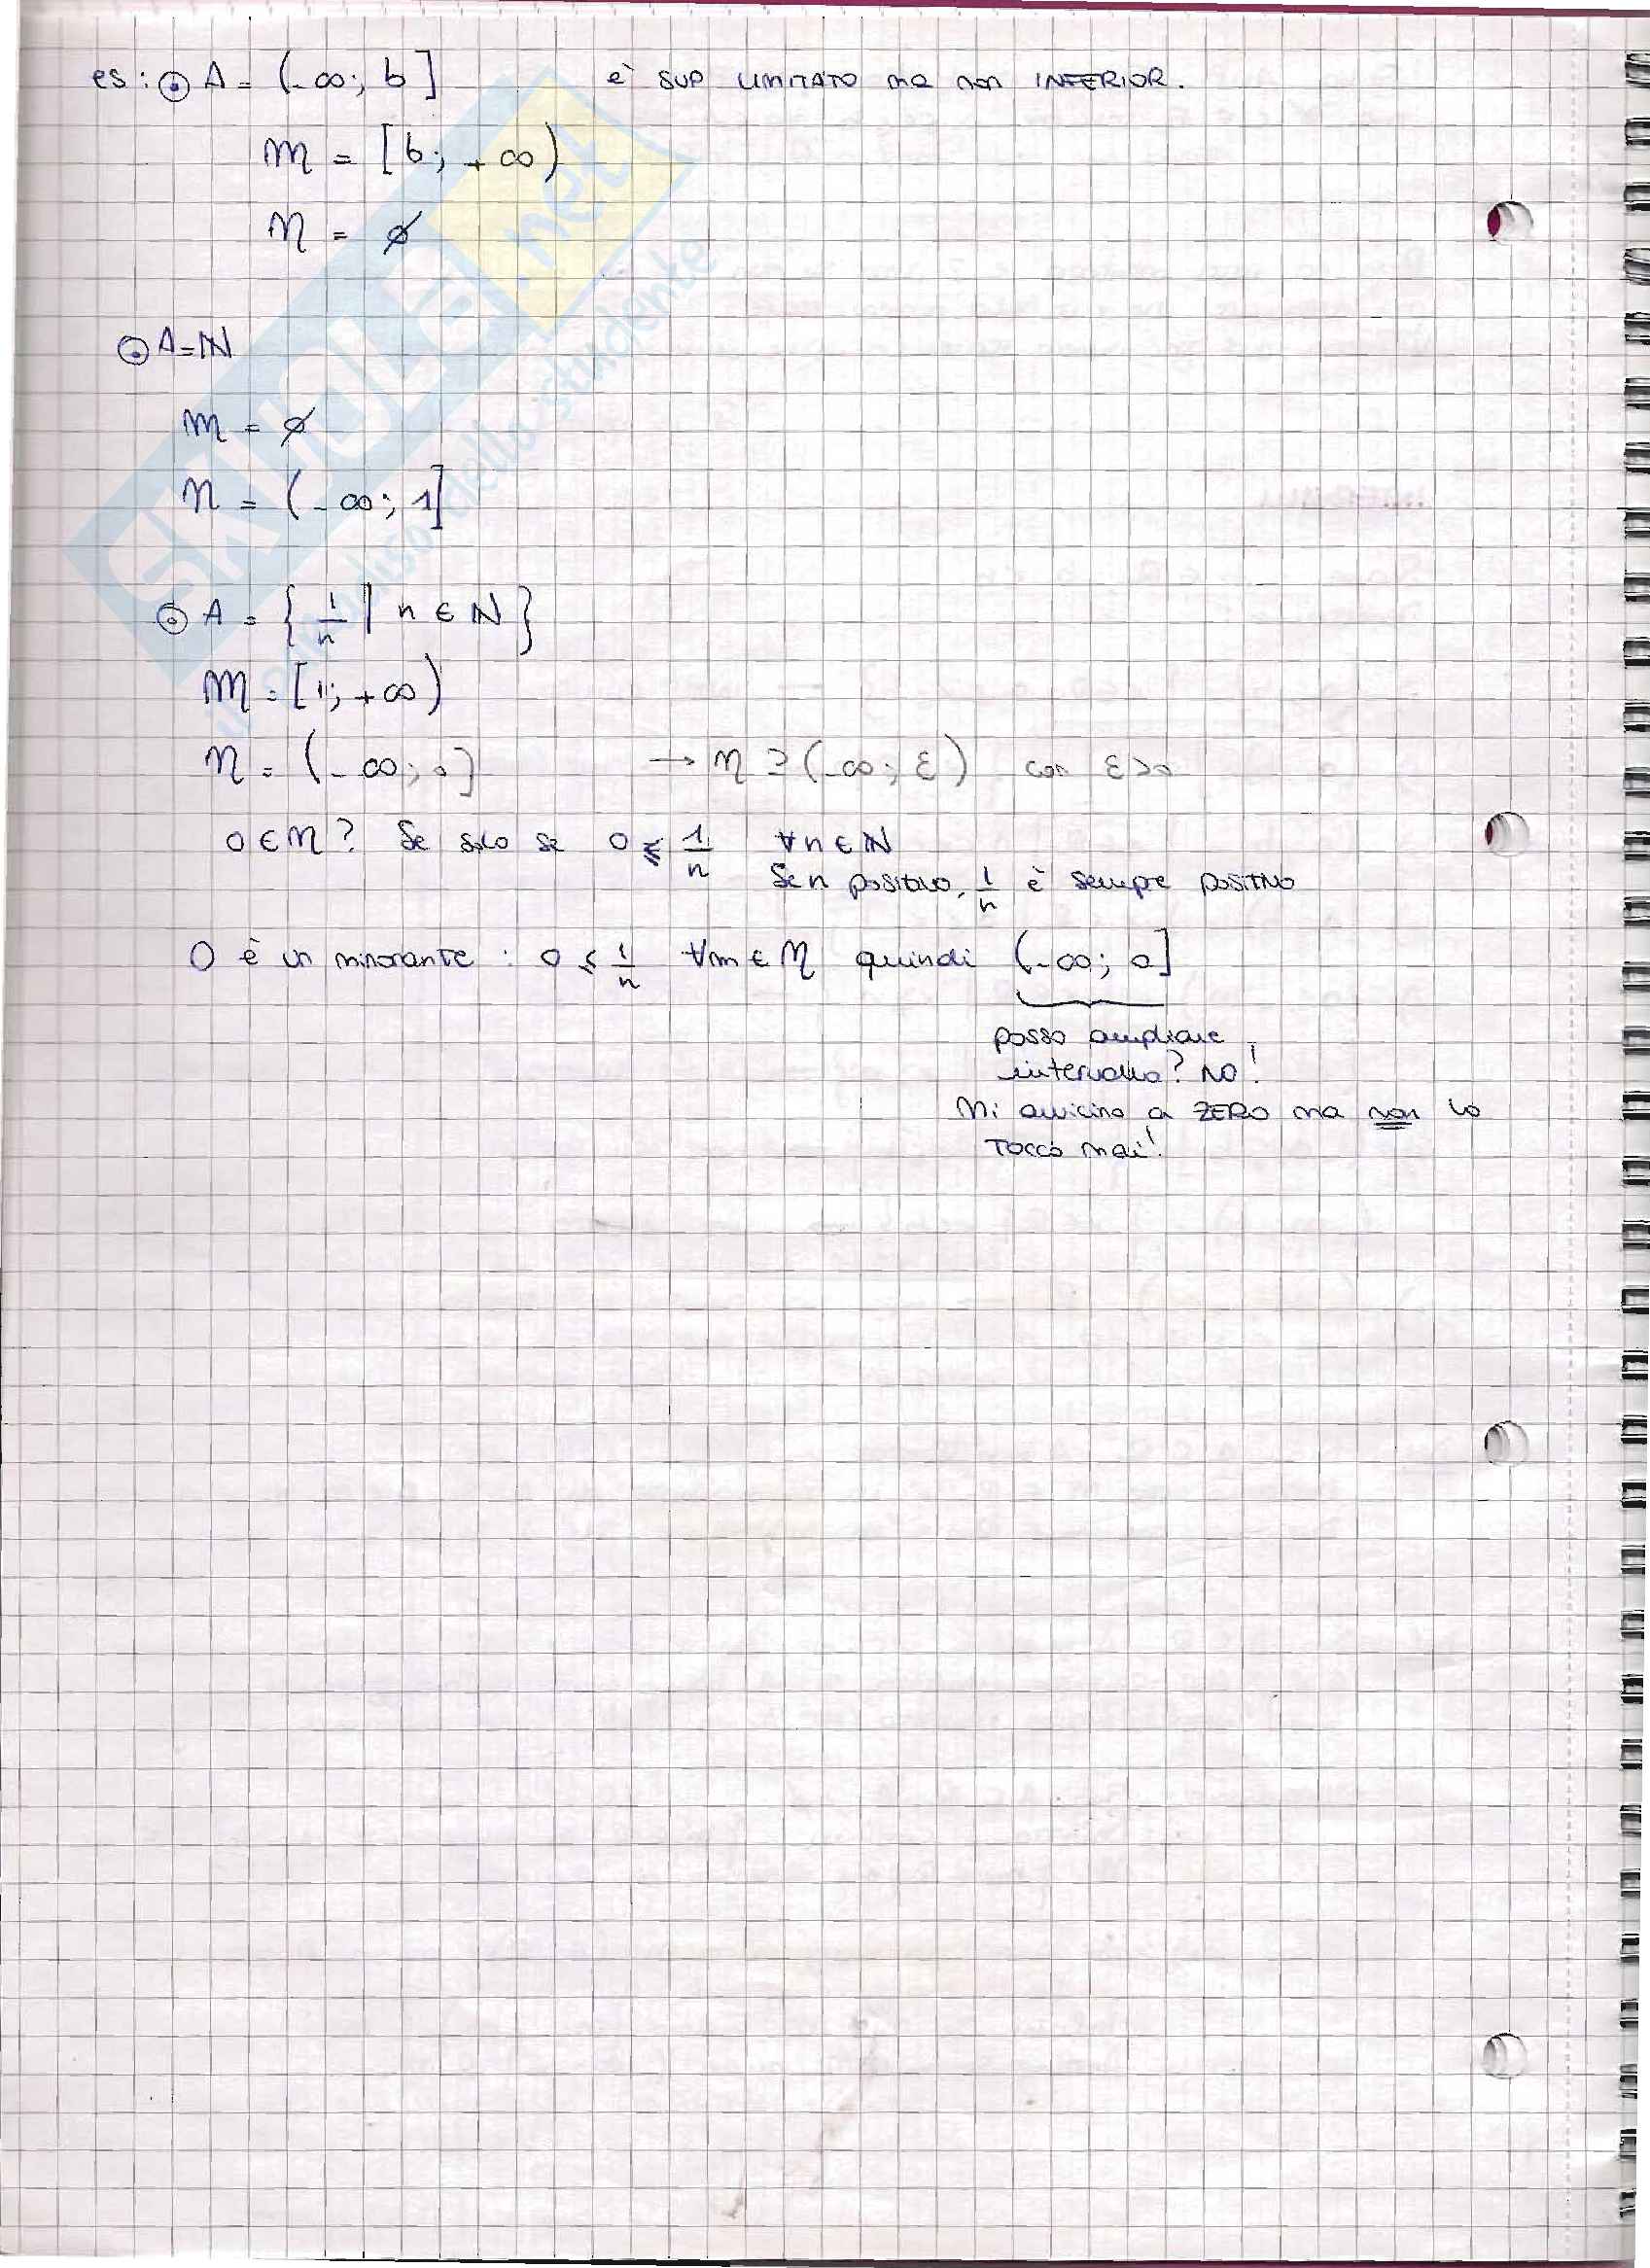 es: ⊙ A = (-∞; b] è SUP LIMITATO ma non INFERIOR.
M = [b; +∞)
η = ∅
⊙ A = ℕ
M = ∅
η = (-∞; 1]
⊙ A = { 1/n | n ∈ ℕ }
M = [1; +∞)
η = (-∞; 0] → η ⊇ (-∞; ε) con ε>0
0 ∈ η? Se solo se 0 ≤ 1/n ∀n ∈ ℕ
Se n positivo, 1/n è sempre positivo
0 è un minorante : 0 ≤ 1/n ∀m ∈ η quindi (-∞; 0]
posso ampliare
intervallo? NO!
Mi avvicino a ZERO ma non lo
TOCCO mai!
SKUOLA.net
il paradiso dello studente